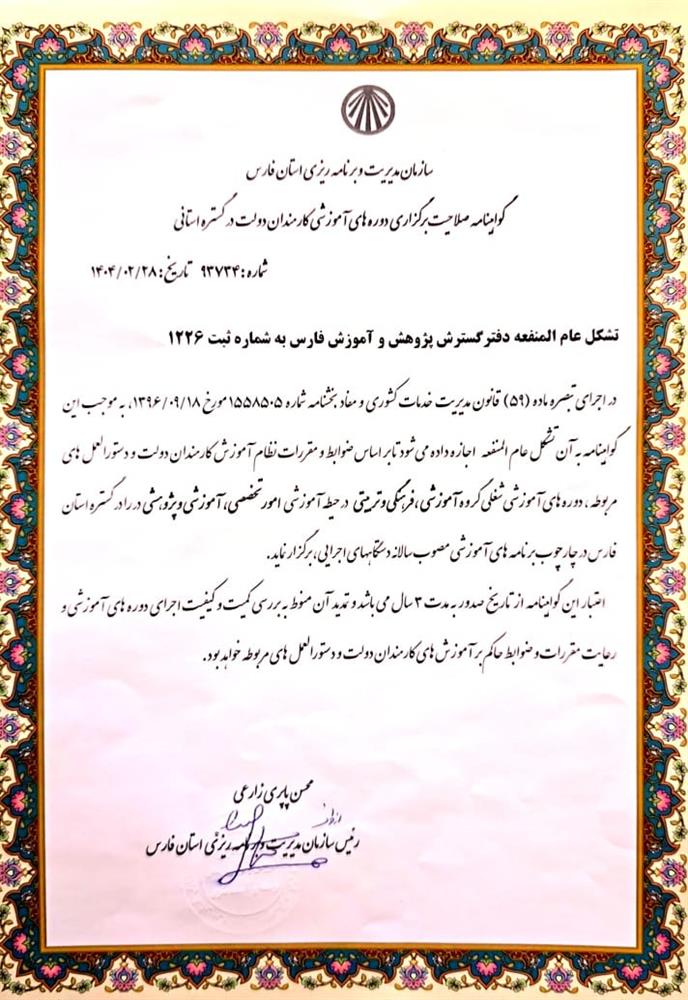 سازمان مدیریت و برنامه ریزی استان فارس
گواهینامه صلاحیت برگزاری دوره های آموزشی کارمندان دولت در گستره استانی
شماره: ۹۳۷۳۴ تاریخ: ۱۴۰۴/۰۲/۲۸
تشکل عام المنفعه دفتر گسترش پژوهش و آموزش فارس به شماره ثبت ۱۲۲۶
در اجرای تبصره ماده (۵۹) قانون مدیریت خدمات کشوری و مفاد بخشنامه شماره ۱۵۵۸۵۰۵ مورخ ۱۳۹۶/۰۹/۱۸، به موجب این
گواهینامه به آن تشکل عام المنفعه اجازه داده می شود تا بر اساس ضوابط و مقررات نظام آموزش کارمندان دولت و دستورالعمل های
مربوطه، دوره های آموزشی شغلی گروه آموزشی، فرهنگی و تربیتی در حیطه آموزشی امور تخصصی، آموزشی و پژوهشی در را در گستره استان
فارس در چارچوب برنامه های آموزشی مصوب سالانه دستگاههای اجرایی، برگزار نماید.
اعتبار این گواهینامه از تاریخ صدور به مدت ۳ سال می باشد و تمدید آن منوط به بررسی کمیت و کیفیت اجرای دوره های آموزشی و
رعایت مقررات و ضوابط حاکم بر آموزش های کارمندان دولت و دستورالعمل های مربوطه خواهد بود.
محسن پاپری زارعی
رئیس سازمان مدیریت و برنامه ریزی استان فارس